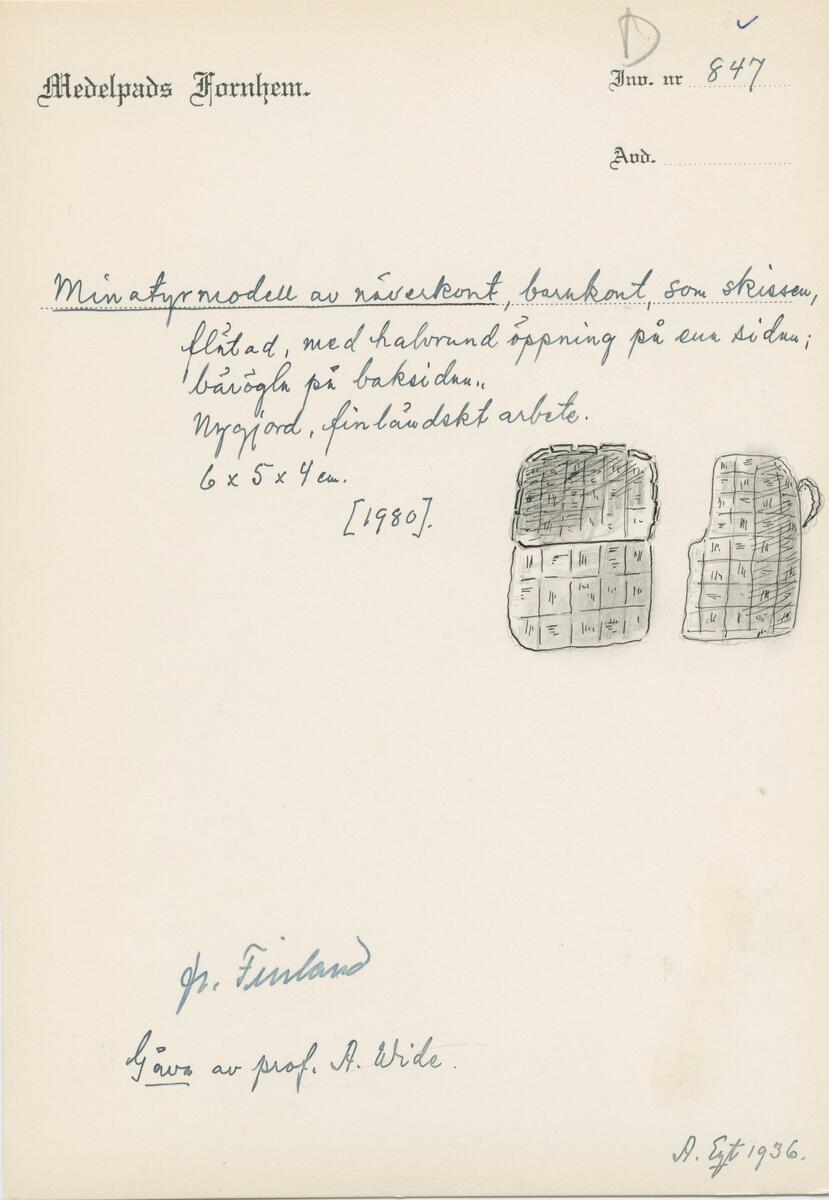 D
Medelpads Fornhem.
Inv. nr 847
Avd.
Miniatyrmodell av näverkont, barnkont, som skissen,
flätad, med halvrund öppning på ena sidan;
bärögla på baksidan.
Nygjord, finländskt arbete.
6 x 5 x 4 cm.
[1980].
fr. Finland
Gåva av prof. A. Wide.
A. 1936.